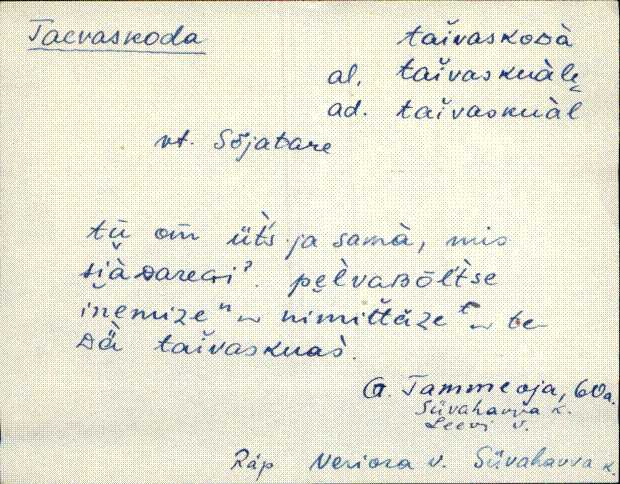 Taevaskoda
taĭvaskoᴅà
al. taĭvaskuàlɐ
ad. taĭvaskuàl
vt. Sõjatare
tū om üt̀s ja samà, mis
pɐ̀lvaʙòĺtse
inemizeⁿ nimit̆täzeᵗ te-
ᴅä̀ taĭvaskuas̀.
G. Tammeoja, 60 a.
Süvahavva k.
Leevi v.
Räp Veriora v. Süvahavva k.